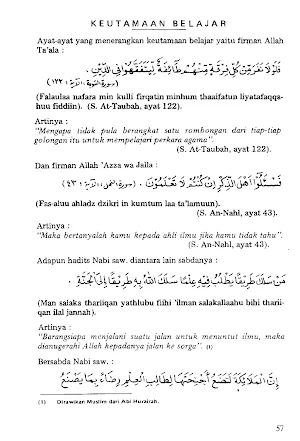 KEUTAMAAN BELAJAR
Ayat-ayat yang menerangkan keutamaan belajar yaitu firman Allah
Ta'ala :
فَلَوْلَا نَفَرَ مِنْ كُلِّ فِرْقَةٍ مِنْهُمْ طَائِفَةٌ لِيَتَفَقَّهُوْا فِي الدِّيْنِ.
(سورة التوبة، الآية : ١٢٢)
(Falaulaa nafara min kulli firqatin minhum thaaifatun liyatafaqqa-
huu fiddiin). (S. At-Taubah, ayat 122).
Artinya :
"Mengapa tidak pula berangkat satu rombongan dari tiap-tiap
golongan itu untuk mempelajari perkara agama".
(S. At-Taubah, ayat 122).
Dan firman Allah 'Azza wa Jalla :
فَسْئَلُوْا اَهْلَ الذِّكْرِ اِنْ كُنْتُمْ لَا تَعْلَمُوْنَ . (سورة النحل، الآية : ٤٣)
(Fas-aluu ahladz dzikri in kumtum laa ta'lamuun).
(S. An-Nahl, ayat 43).
Artinya :
"Maka bertanyalah kamu kepada ahli ilmu jika kamu tidak tahu".
(S. An-Nahl, ayat 43).
Adapun hadits Nabi saw. diantara lain sabdanya :
مَنْ سَلَكَ طَرِيْقًا يَطْلُبُ فِيْهِ عِلْمًا سَلَكَ اللهُ بِهِ طَرِيْقًا اِلَى الْجَنَّةِ.
(Man salaka thariiqan yathlubu fiihi 'ilman salakallaahu bihi tharii-
qan ilal jannah).
Artinya :
"Barangsiapa menjalani suatu jalan untuk menuntut ilmu, maka
dianugerahi Allah kepadanya jalan ke sorga". (1)
Bersabda Nabi saw. :
اِنَّ الْمَلَائِكَةَ لَتَضَعُ اَجْنِحَتَهَا لِطَالِبِ الْعِلْمِ رِضَاءً بِمَا يَصْنَعُ
(1) Dirawikan Muslim dari Abi Hurairah.
57